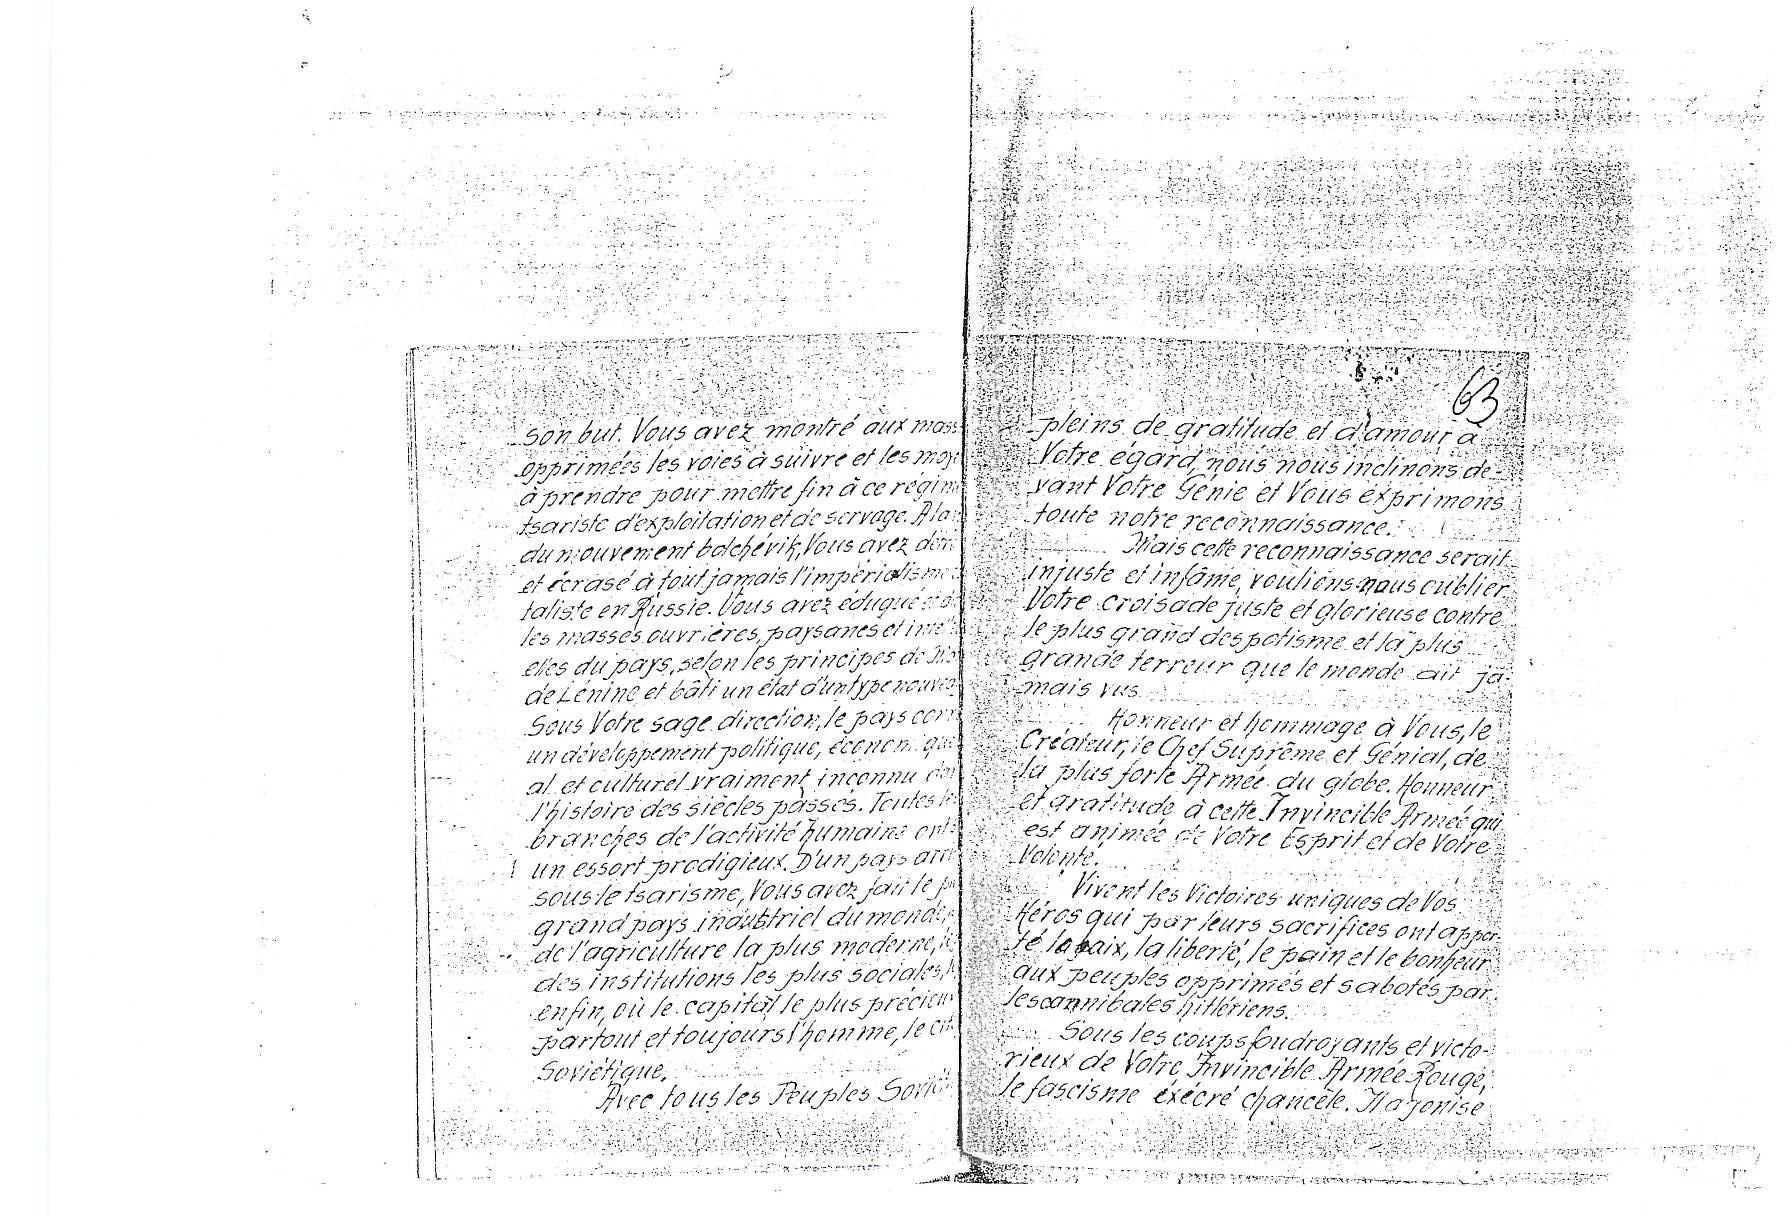 son but. Vous avez montré aux mass
opprimées les voies à suivre et les moy
à prendre pour mettre fin à ce régim
tsariste d'exploitation et de servage. A la
du mouvement bolchévik, Vous avez
et écrasé à tout jamais l'impérialisme
taliste en Russie. Vous avez éduqué et
les masses ouvrières, paysanes et
elles du pays, selon les principes de
de Lénine et bâti un état d'un type nouveau
Sous Votre sage direction, le pays
un développement politique, économique
al et culturel vraiment inconnu
l'histoire des siècles passés. Toutes les
branches de l'activité humaine ont
un essort prodigieux. D'un pays arri
sous le tsarisme, Vous avez fait le
grand pays industriel du monde,
de l'agriculture la plus moderne,
des institutions les plus sociales,
enfin, où le capital le plus précieux
partout et toujours l'homme, le cit
Soviétique.
Avec tous les Peuples Sovié
63
pleins de gratitude et d'amour à
Votre égard, nous nous inclinons de-
vant Votre Génie et Vous exprimons
toute notre reconnaissance.
Mais cette reconnaissance serait
injuste et infâme, voulions nous oublier
Votre croisade juste et glorieuse contre
le plus grand despotisme et la plus
grande terreur que le monde ait ja-
mais vus
Honneur et hommage à Vous, le
Créateur, le Chef Suprême et Génial, de
la plus forte Armée du globe. Honneur
et gratitude à cette Invincible Armée qui
est animée de Votre Esprit et de Votre
Volonté.
Vivent les Victoires uniques de Vos
Héros qui par leurs sacrifices ont appor-
té la paix, la liberté, le pain et le bonheur
aux peuples opprimés et sabotés par
les cannibales hitlériens.
Sous les coups foudroyants et victo-
rieux de Votre Invincible Armée Rouge,
le fascisme exécré chancèle. Il agonise